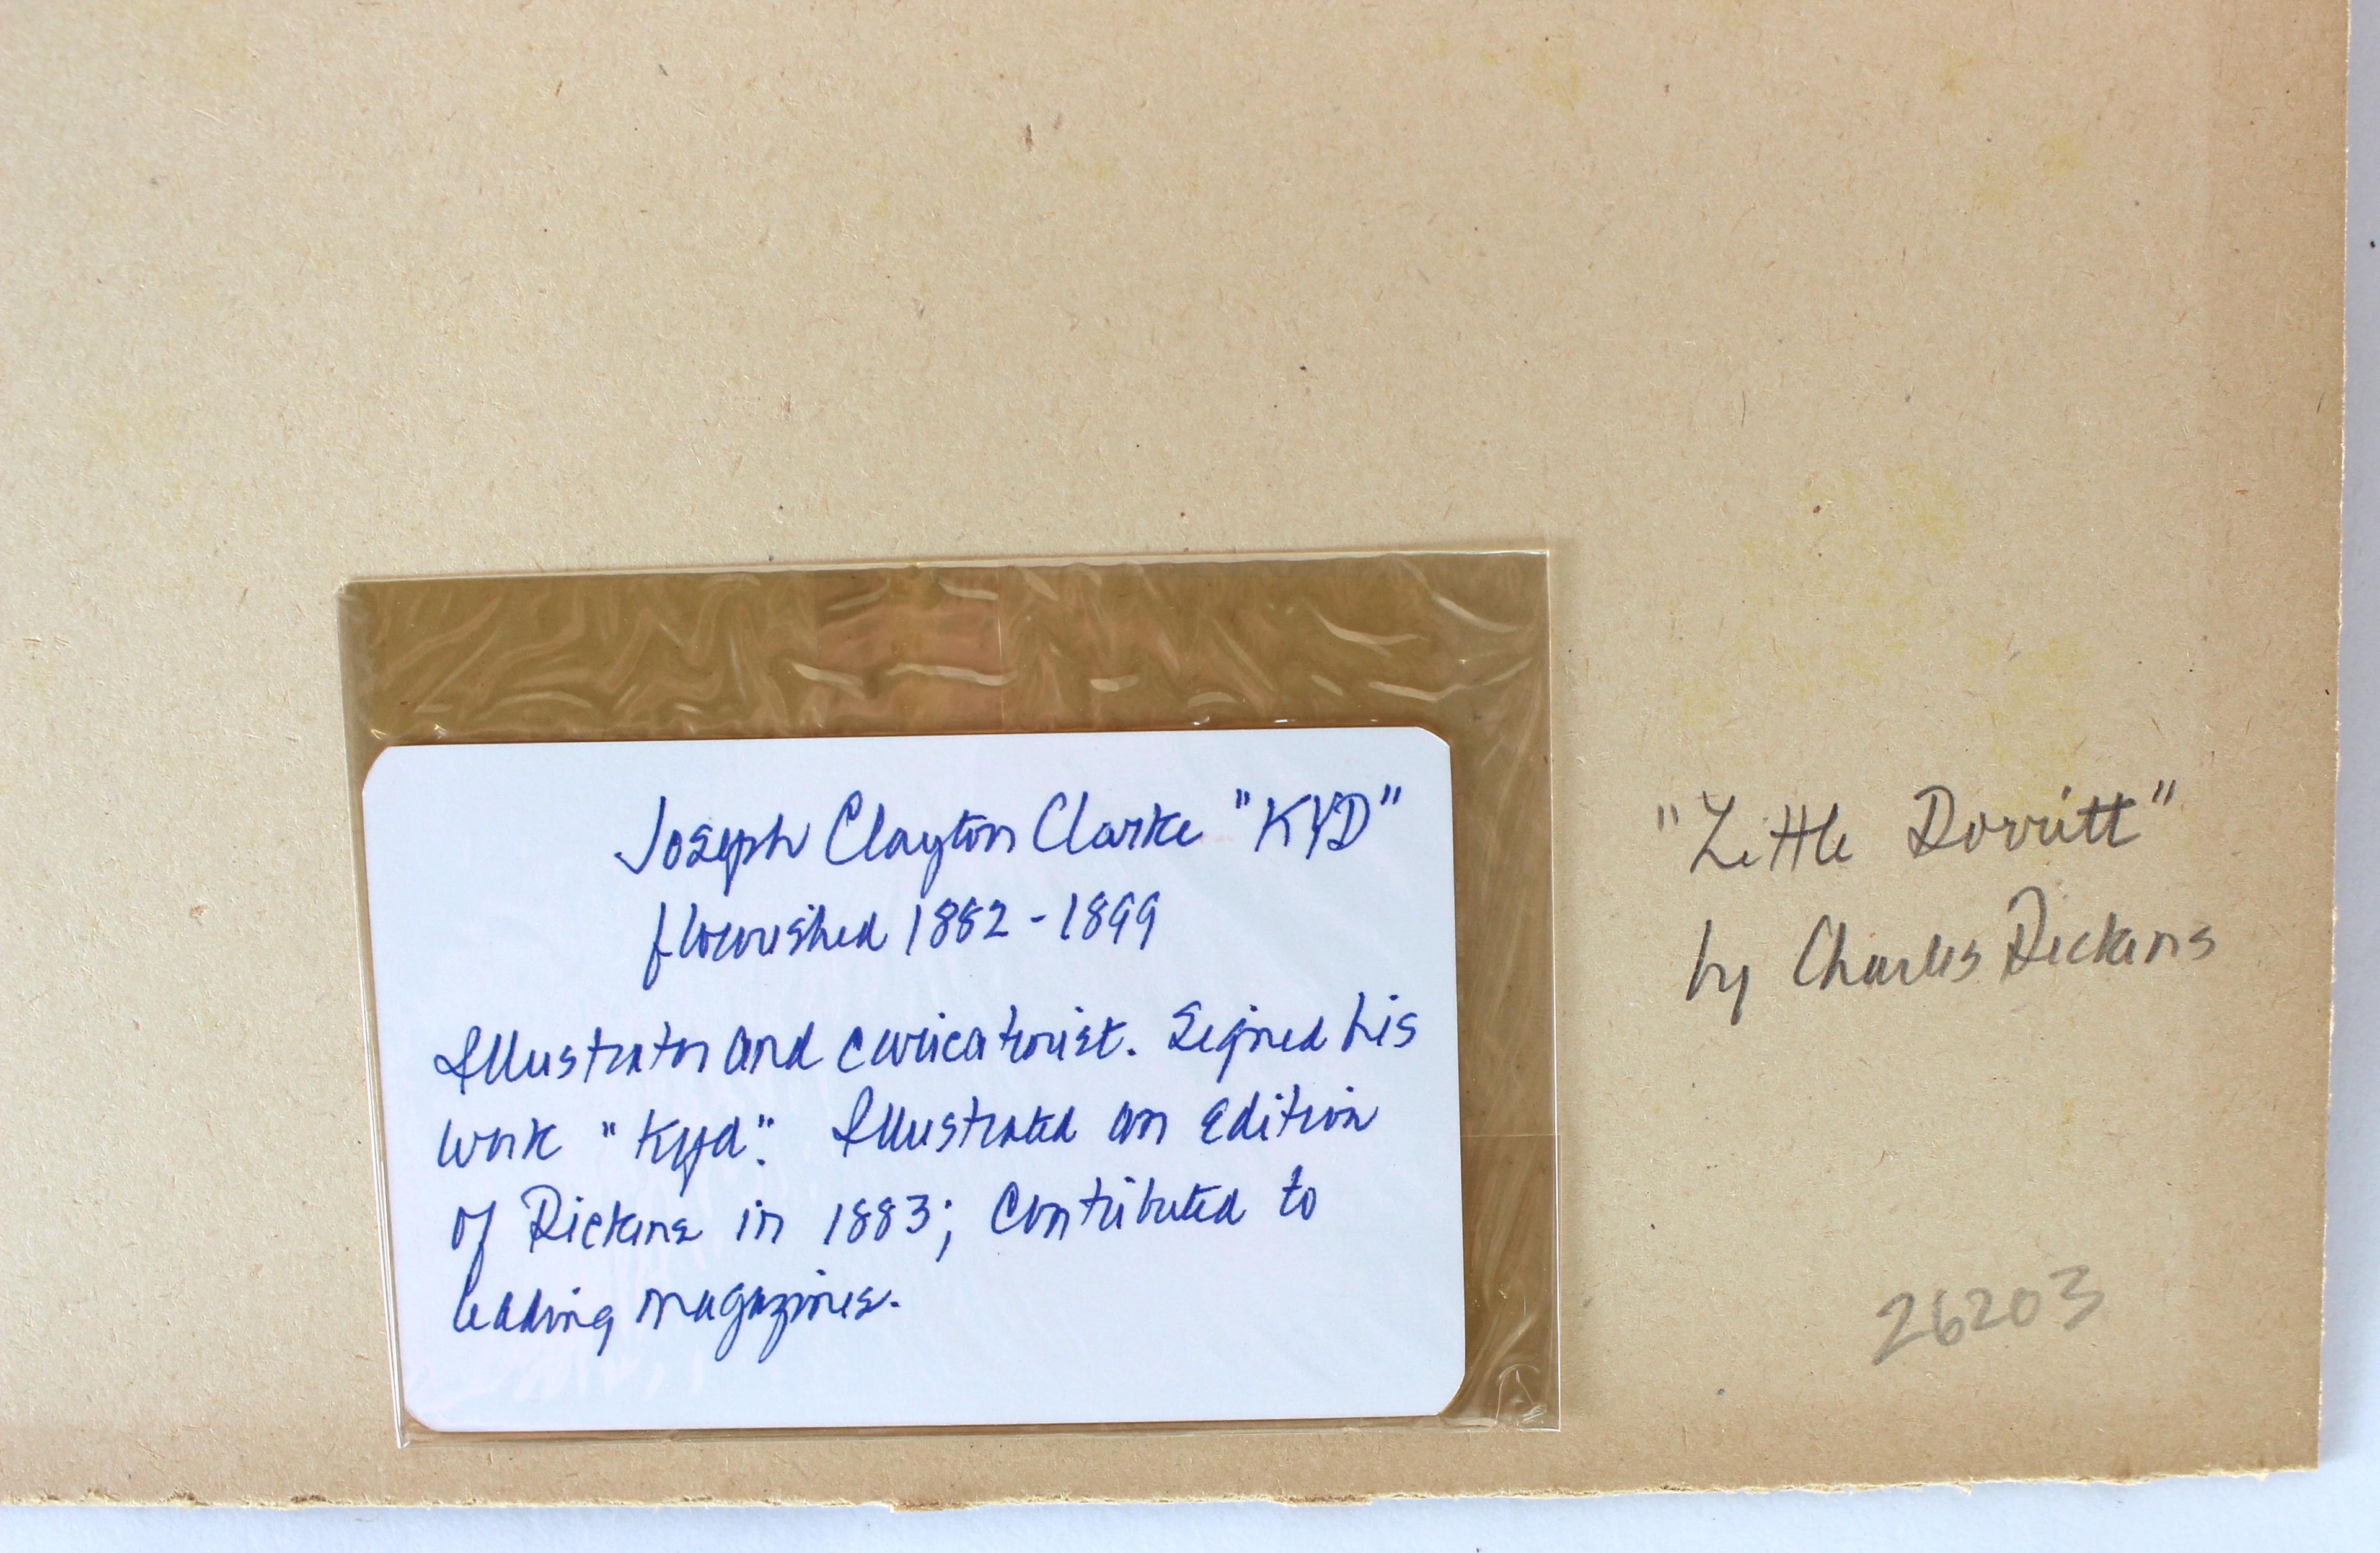 Joseph Clayton Clarke "KYD"
flourished 1882-1899
Illustrator and caricaturist. Signed his
work "Kyd". Illustrated an edition
of Dickens in 1883; Contributed to
leading magazines.
"Little Dorritt"
by Charles Dickens
26203